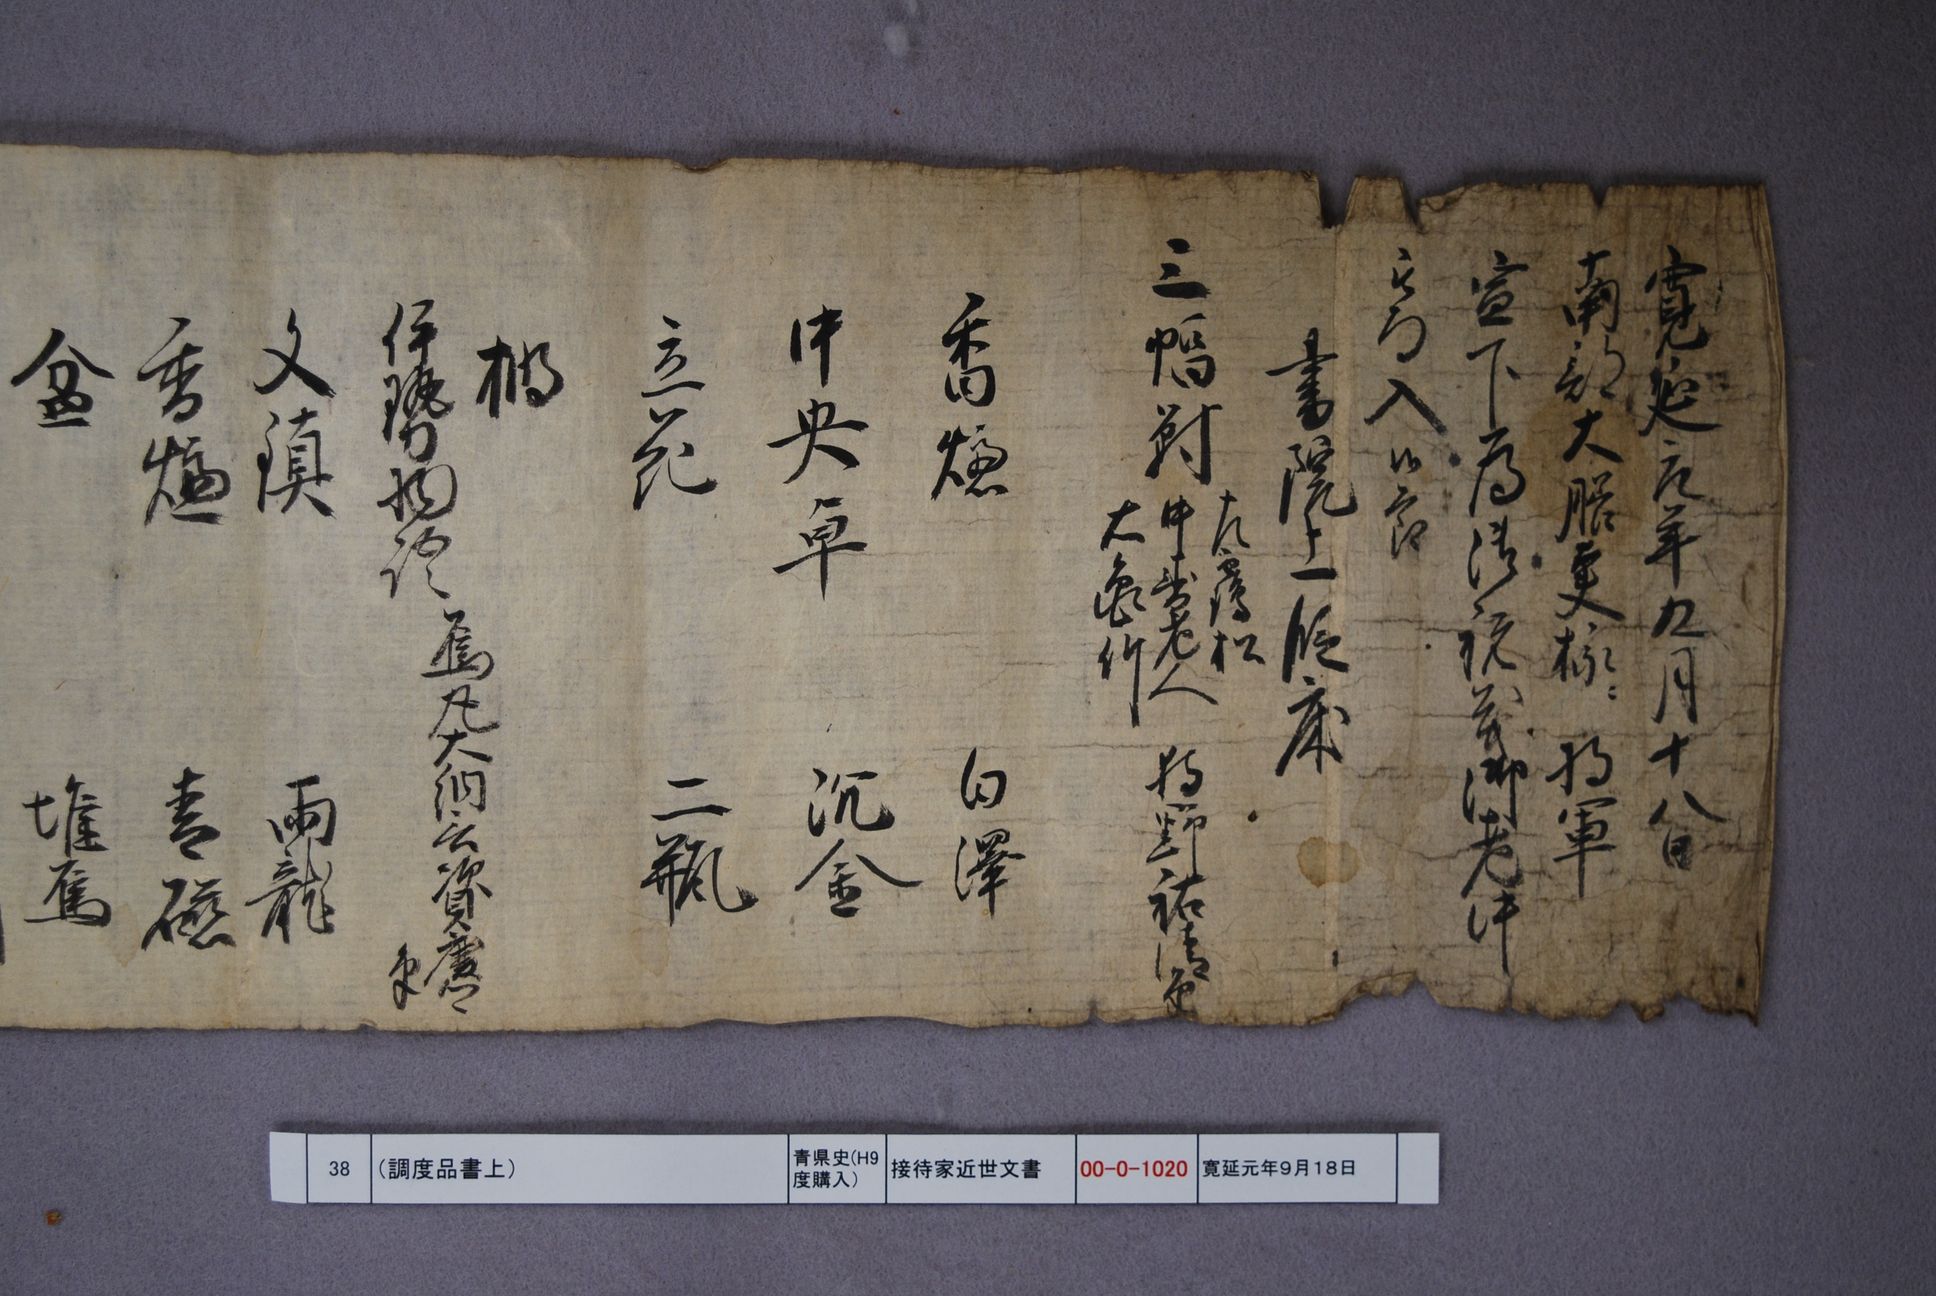 寛延元年九月十八日
南部大膳更様 将軍
宣下為御祝義御老中
方入御節
書院上段床
三幅対
左 鶴松
中 寿老人
右 亀竹
狩野祐清筆
香爐 白澤
中央卓 沉金
立花 二瓶
棚
伊勢物語
烏丸大納言資慶
文鎮 雨龍
香爐 青磁
盆 堆
38
(調度品書上)
青県史(H9
度購入)
接待家近世文書
00-0-1020
寛延元年9月18日